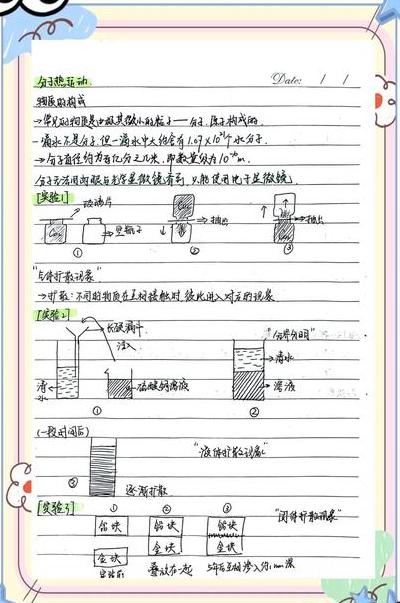 分子热运动.
Date: / /
物质的构成
→常见的物质是由极其微小的粒子——分子、原子构成的.
一滴水不是分子,但一滴水中大约含有1.67×10²¹个水分子.
→分子直径约为百亿分之几米,即数量级为10⁻¹⁰m.
分子无法用肉眼与光学显微镜看到,只能使用电子显微镜.
[实验1]
玻璃片
空瓶子
抽出
抽出
① ② ③
"气体扩散现象"
→扩散:不同的物质在互相接触时彼此进入对方的现象
[实验2]
长颈漏斗
注入
清水
硫酸铜溶液
"分界分明"
清水
溶液
① ②
(一段时间后)
③
逐渐扩散
"液体扩散现象"
[实验3]
① ② ③
铅块 铅块 铅块
金块 金块 金块
"固体扩散现象"
实验前 叠放在一起 5年后互相渗入约1mm深